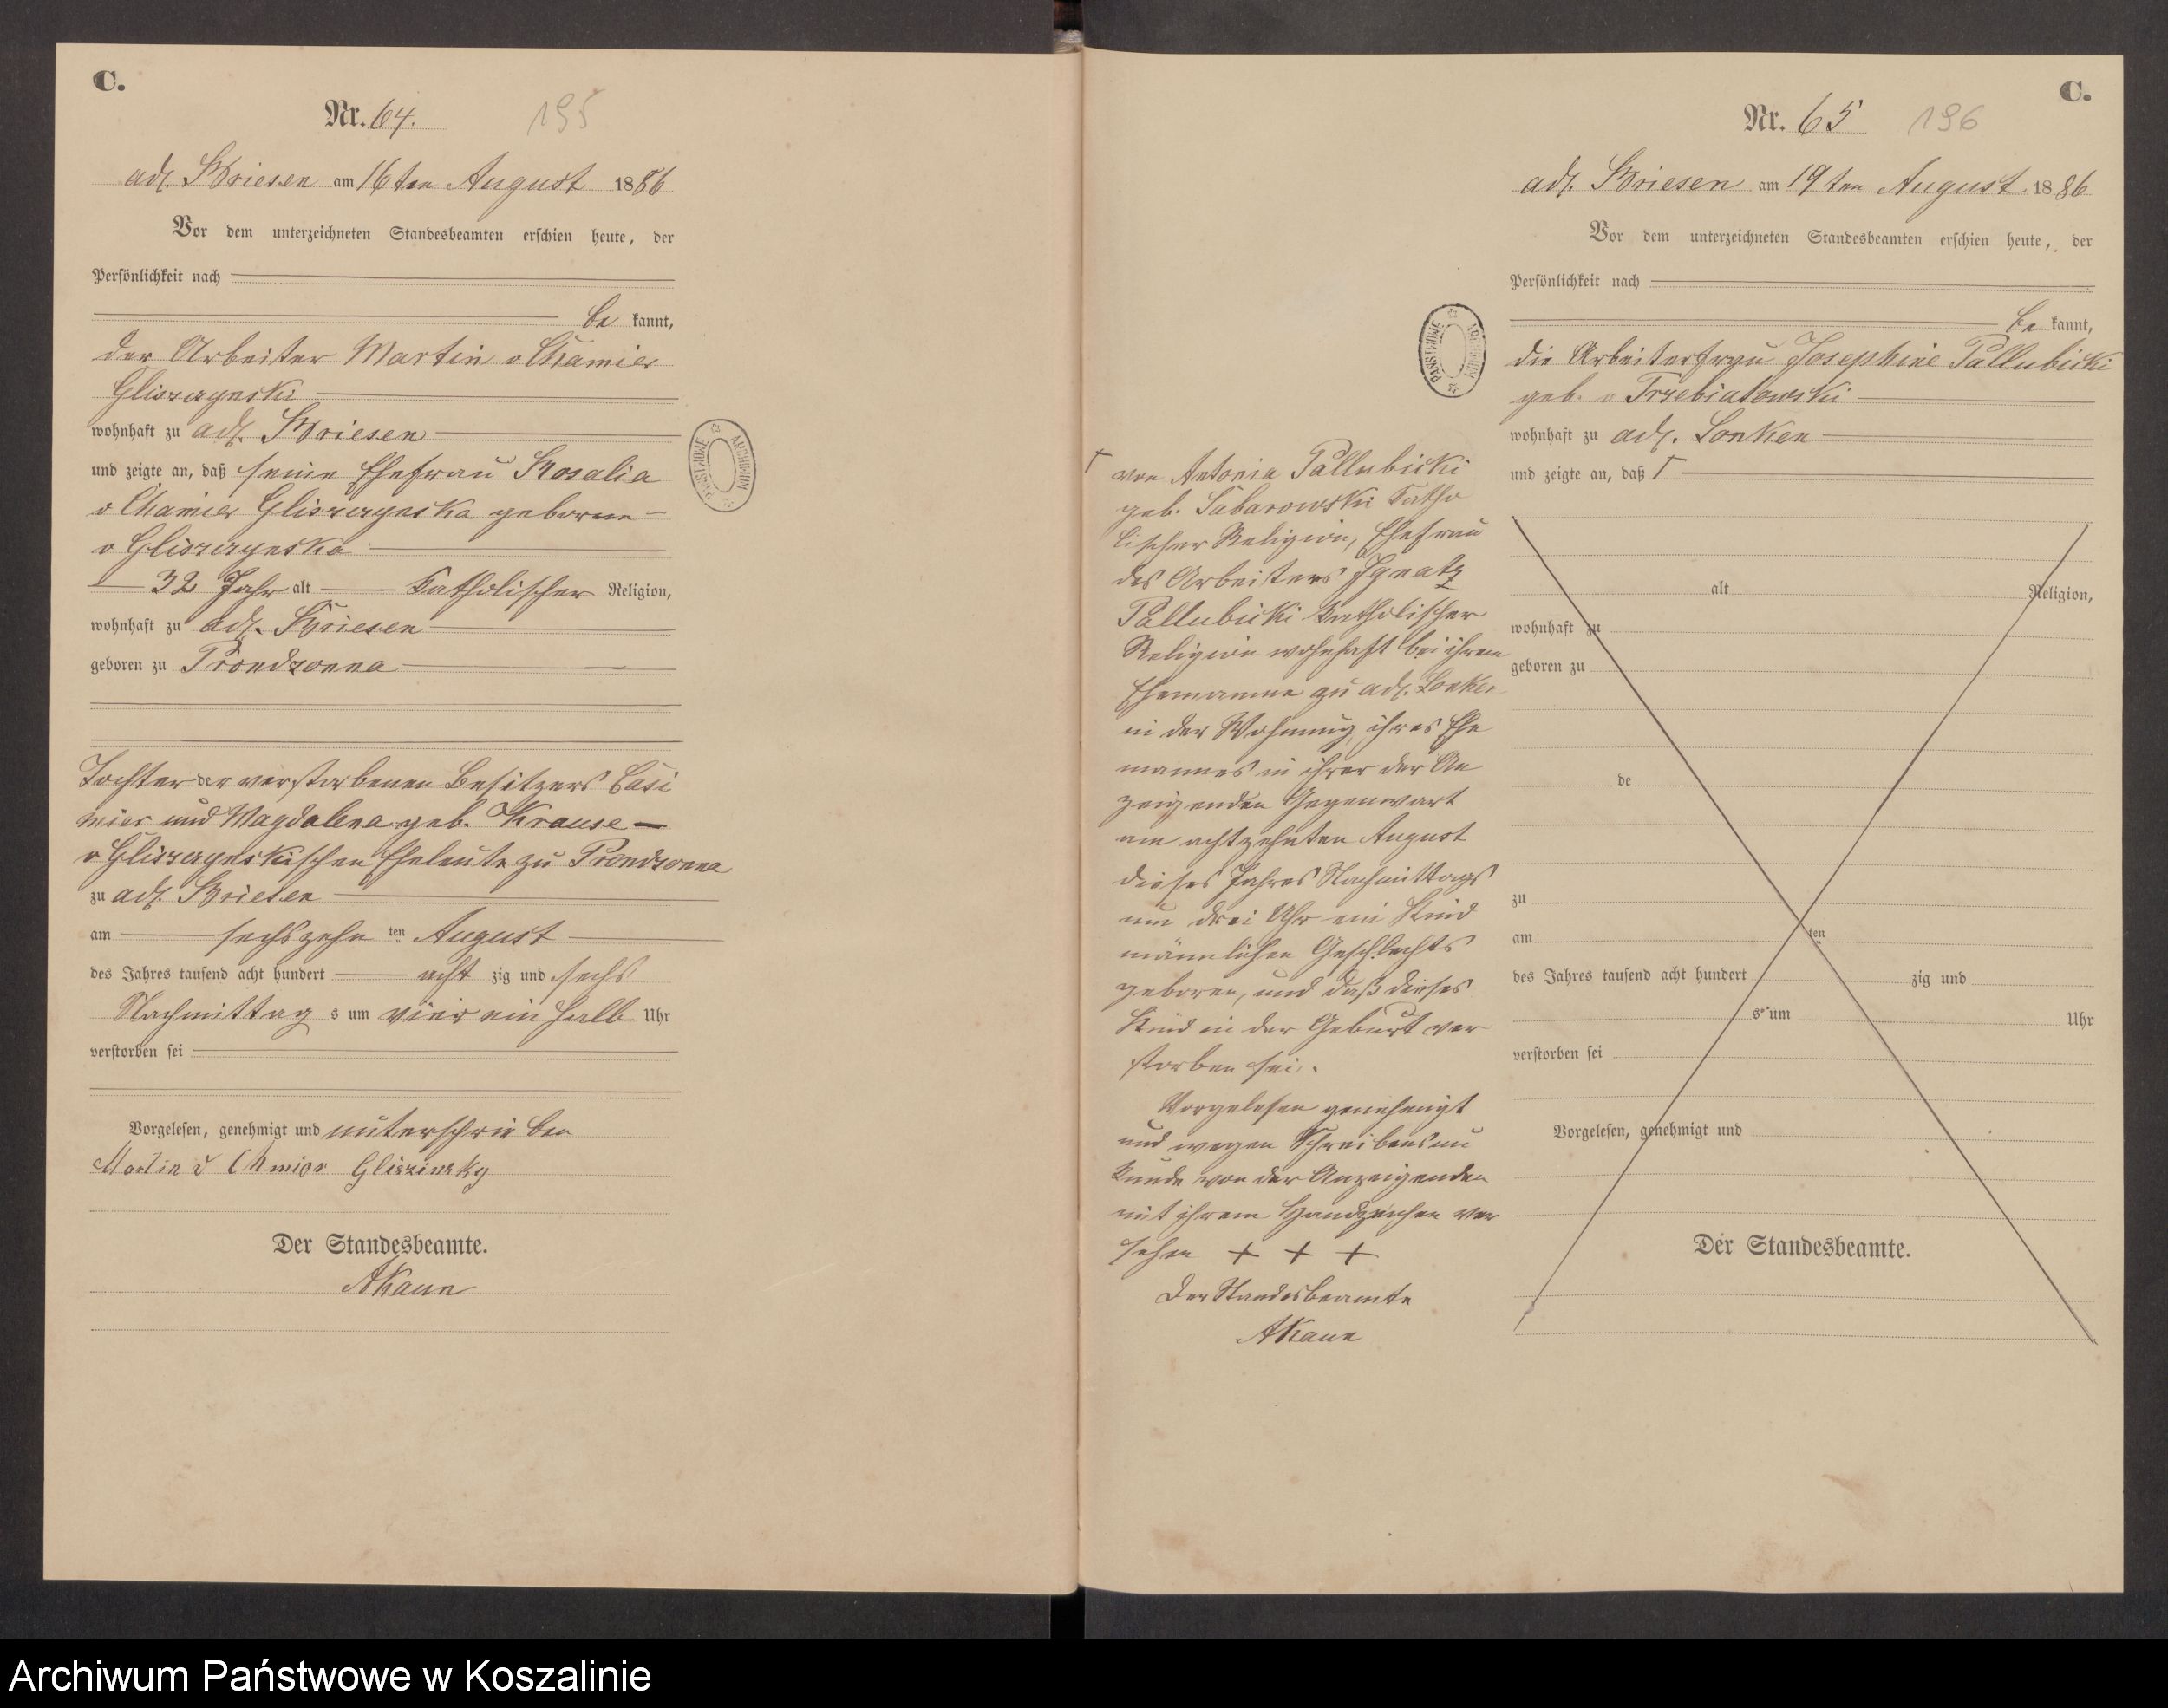 C.
Nr. 64. 195
adl. Briesen am 16ten August 1886
Vor dem unterzeichneten Standesbeamten erschien heute, der
Persönlichkeit nach
be kannt,
der Arbeiter Martin v Chamier
Gliszczynski
wohnhaft zu adl. Briesen
und zeigte an, daß seine Ehefrau Rosalia
v Chamier Gliszczynska geborene
v Gliszczynska
32 Jahr alt katholischer Religion,
wohnhaft zu adl. Briesen
geboren zu Prondzonna
Tochter der verstorbenen Besitzers Casi
mier und Magdalena geb. Krause
v Gliszczynskischen Eheleute zu Prondzonna
zu adl. Briesen
am sechszehn ten August
des Jahres tausend acht hundert acht zig und sechs
Nachmittag s um vier ein halb Uhr
verstorben sei
Vorgelesen, genehmigt und unterschrieben
Martin v Chmior Gliszinsky
Der Standesbeamte.
AKaun
ARCHIWUM PAŃSTWOWE
C.
Nr. 65 196
adl. Briesen am 19ten August 1886
Vor dem unterzeichneten Standesbeamten erschien heute, der
Persönlichkeit nach
be kannt,
die Arbeiterfrau Josephine Pallubicki
geb. v Trzebiatowski
wohnhaft zu adl. Lonken
und zeigte an, daß Γ
alt Religion,
wohnhaft zu
geboren zu
de
zu
am ten
des Jahres tausend acht hundert zig und
s um Uhr
verstorben sei
Vorgelesen, genehmigt und
Der Standesbeamte.
ARCHIWUM PAŃSTWOWE
Γ von Antonia Pallubicki
geb. Sabarowski katho
lischer Religion, Ehefrau
des Arbeiters Ignatz
Pallubicki katholischer
Religion wohnhaft bei ihrem
Ehemanne zu adl. Lonken
in der Wohnung ihres Ehe
mannes in ihrer der An
zeigenden Gegenwart
am achtzehnten August
dieses Jahres Nachmittags
um drei Uhr ein Kind
männlichen Geschlechts
geboren, und daß dieses
Kind in der Geburt ver
storben sei.
Vorgelesen genehmigt
und wegen Schreibensun
kunde von der Anzeigenden
mit ihrem Handzeichen ver
sehen + + +
Der Standesbeamte
AKaun
Archiwum Państwowe w Koszalinie